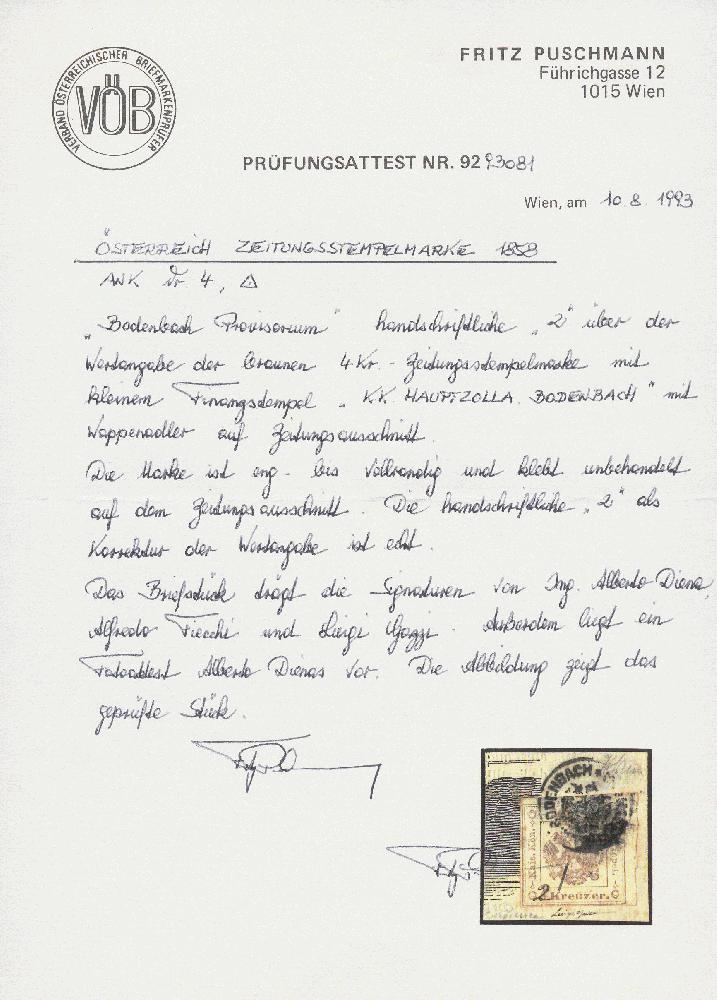 VERBAND ÖSTERREICHISCHER BRIEFMARKENPRÜFER
VÖB
FRITZ PUSCHMANN
Führichgasse 12
1015 Wien
PRÜFUNGSATTEST NR. 92 93081
Wien, am 10. 8. 1993
ÖSTERREICH ZEITUNGSSTEMPELMARKE 1858
ANK Nr 4, △
"Bodenbach Provisorium" handschriftliche "2" über der
Wertangabe der braunen 4 Kr. - Zeitungsstempelmarke mit
kleinem Finanzstempel "K.K. HAUPTZOLLA. BODENBACH" mit
Wappenadler auf Zeitungsausschnitt.
Die Marke ist eng- bis vollrandig und klebt unbehandelt
auf dem Zeitungsausschnitt. Die handschriftliche "2" als
Korrektur der Wertangabe ist echt.
Das Briefstück trägt die Signaturen von Ing. Alberto Diena,
Alfredo Fiecchi und Luigi Gazzi. Außerdem liegt ein
Fotoattest Alberto Dienas vor. Die Abbildung zeigt das
geprüfte Stück.
BODENBACH
Kais. Kön.
2
Kreuzer.